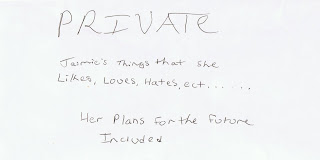 PRIVATE
Jaimie's Things that she
Likes, Loves, Hates, ect......
Her Plans for the Future
Included